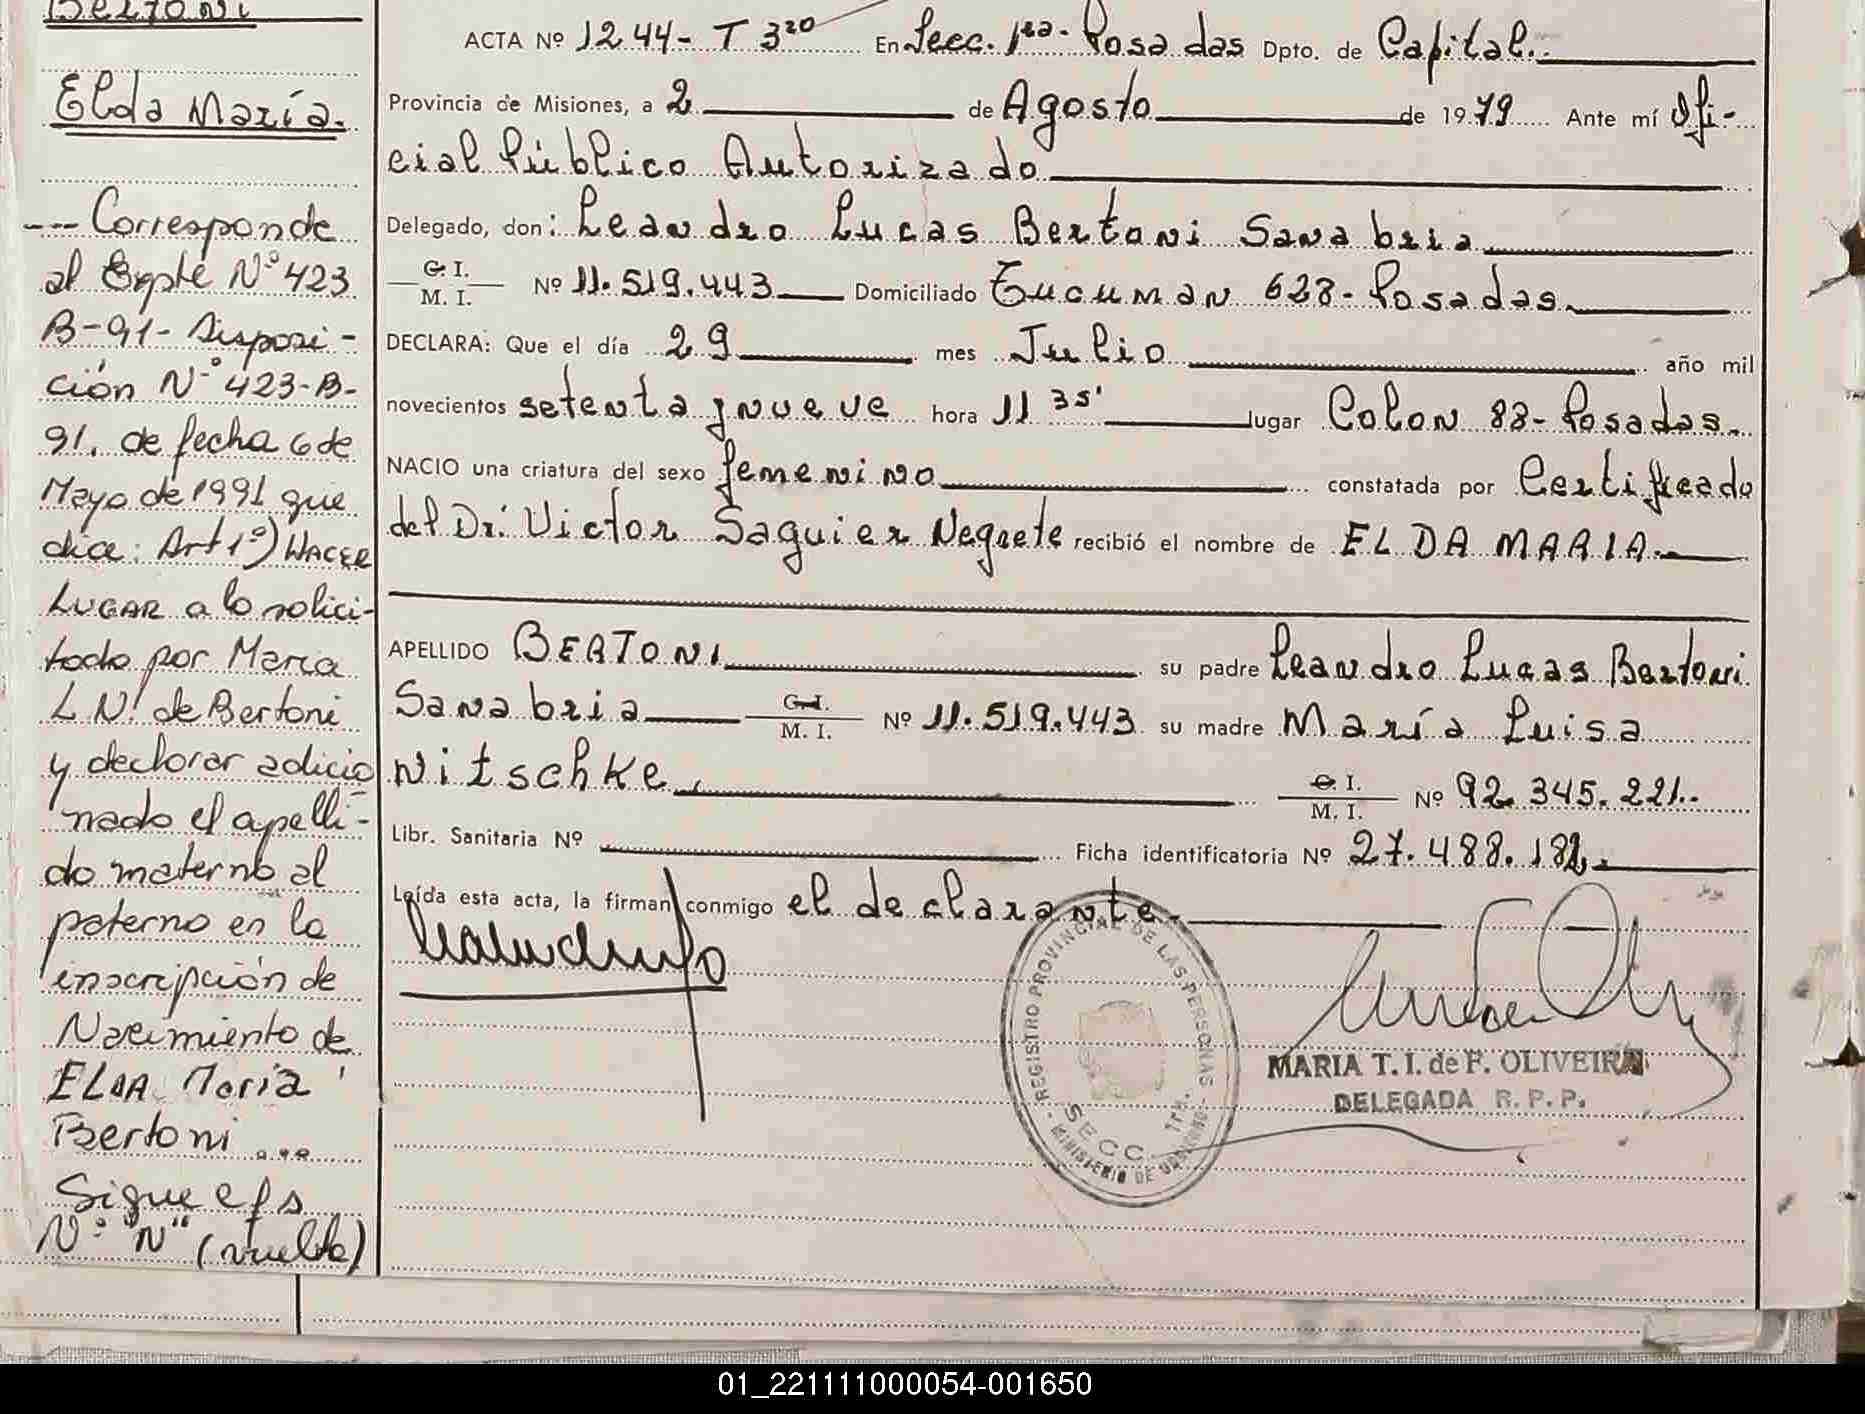 Bertoni
Elda María.
--- Corresponde
al Expte Nº 423
B-91- Disposi-
ción Nº 423-B-
91. de fecha 6 de
Mayo de 1991 que
dice: Art 1º) HACER
LUGAR a lo solici-
tado por Maria
L N. de Bertoni
y declarar adicio
nado el apelli-
do materno al
paterno en la
inscripción de
Nacimiento de
ELDA Maria
Bertoni ...
Sigue
Nº "N" (vuelta)
ACTA Nº 1244- T 3ro En Secc. 1ra- Posadas Dpto. de Capital.
Provincia de Misiones, a 2 de Agosto de 1979 Ante mí Ofi-
cial Público Autorizado
Delegado, don: Leandro Lucas Bertoni Sanabria
C. I. / M. I. Nº 11.519.443 Domiciliado Tucuman 628- Posadas.
DECLARA: Que el día 29 mes Julio año mil
novecientos setenta y nueve hora 11 35' lugar Colon 88- Posadas.
NACIO una criatura del sexo femenino constatada por Certificado
del Dr. Victor Saguier Negrete recibió el nombre de ELDA MARIA.
APELLIDO BERTONI su padre Leandro Lucas Bertoni
Sanabria C. I. / M. I. Nº 11.519.443 su madre María Luisa
Nitschke, C. I. / M. I. Nº 92.345.221.-
Libr. Sanitaria Nº Ficha identificatoria Nº 27.488.182.
Leída esta acta, la firman conmigo el declarante.
- REGISTRO PROVINCIAL DE LAS PERSONAS -
MINISTERIO DE GOBIERNO
SECC.
MARIA T. I. de F. OLIVEIRA
DELEGADA R. P. P.
01_221111000054-001650